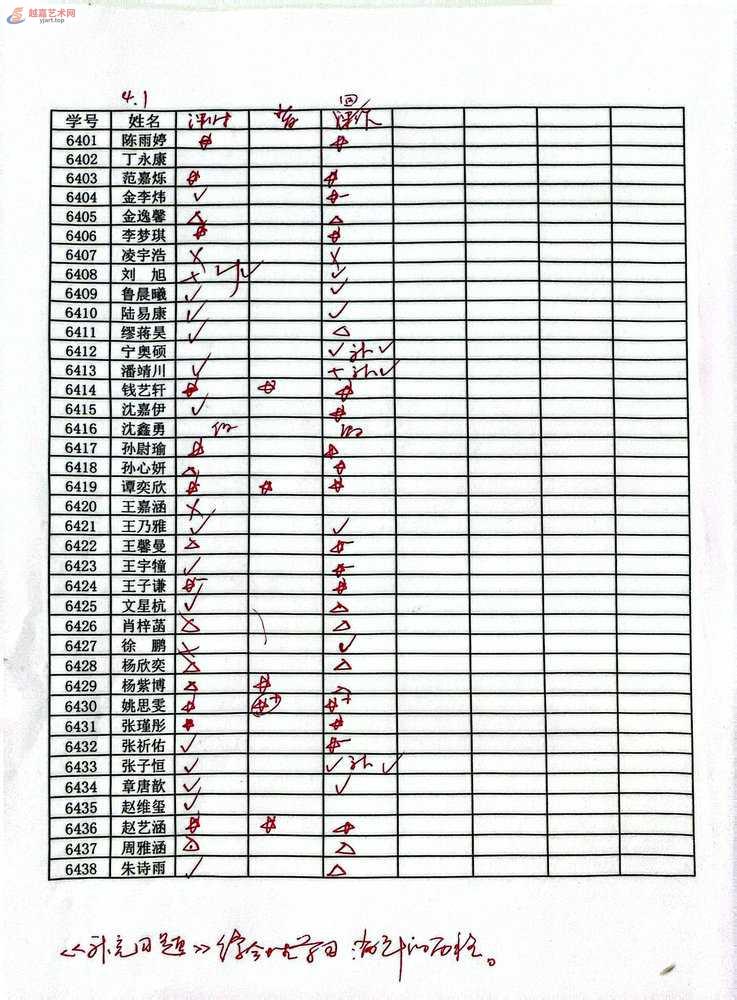 越嘉艺术网
yjart.top
4.1
学号 姓名
6401 陈雨婷
6402 丁永康
6403 范嘉烁
6404 金李炜
6405 金逸馨
6406 李梦琪
6407 凌宇浩
6408 刘 旭
6409 鲁晨曦
6410 陆易康
6411 缪蒋昊
6412 宁奥硕 补
6413 潘靖川 补
6414 钱艺轩
6415 沈嘉伊
6416 沈鑫勇
6417 孙尉瑜
6418 孙心妍
6419 谭奕欣
6420 王嘉涵
6421 王乃雅
6422 王馨曼
6423 王宇犝
6424 王子谦
6425 文星杭
6426 肖梓菡
6427 徐 鹏
6428 杨欣奕
6429 杨紫博
6430 姚思雯
6431 张瑾彤
6432 张祈佑
6433 张子恒 补
6434 章唐歆
6435 赵维玺
6436 赵艺涵
6437 周雅涵
6438 朱诗雨